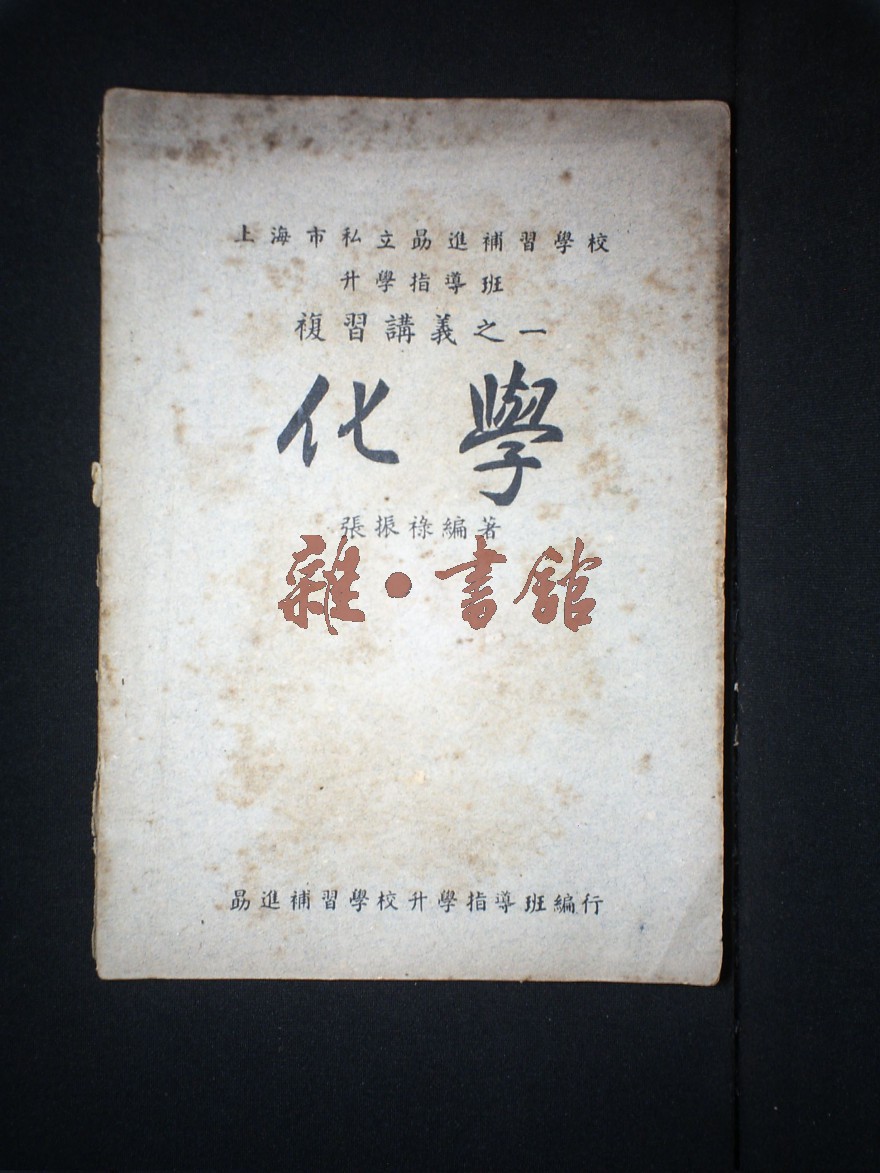 上海市私立勗進補習學校
升學指導班
複習講義之一
化學
張振祿編著
雜·書館
勗進補習學校升學指導班編行